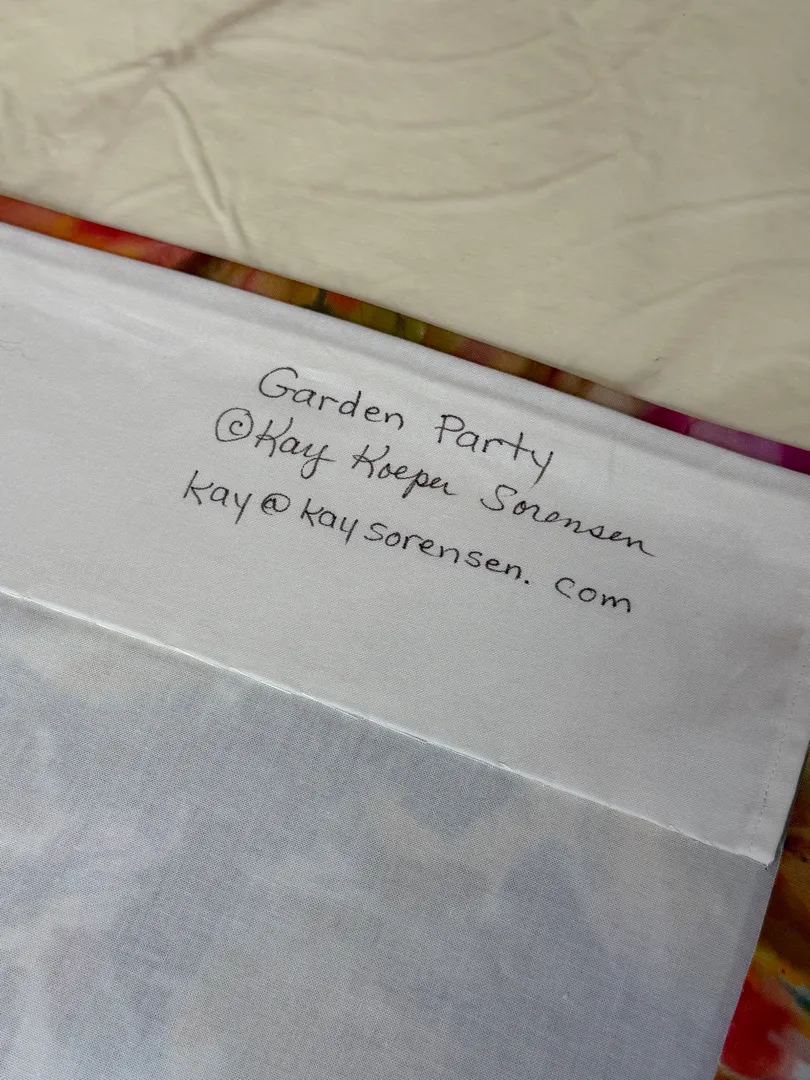 Garden Party
©Kay Koeper Sorensen
kay@kaysorensen.com